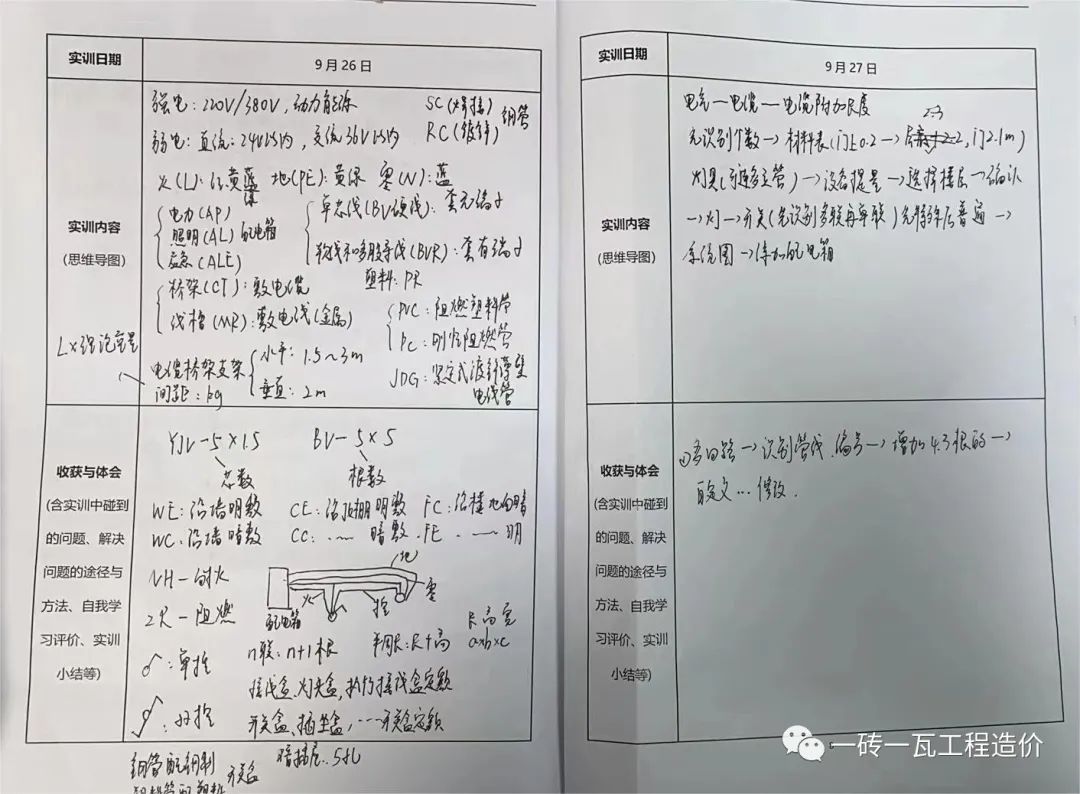 实训日期
9月26日
实训内容
(思维导图)
强电：220V/380V，动力能源
SC(焊接)
RC(镀锌)
钢管
弱电：直流：24V以内，交流36V以内
火(L)：红黄
地(PE)：黄绿 零(N)：蓝
电力(AP)
照明(AL)
应急(ALE)
配电箱
单芯线(BV硬线)：套元端子
软线和多股导线(BVR)：套有端子
塑料：PR
桥架(CT)：敷电缆
线槽(MR)：敷电线(金属)
PVC：阻燃塑料管
PC：刚性阻燃管
JDG：紧定式
电线管
电缆桥架支架
间距：kg
水平：1.5~3m
垂直：2m
收获与体会
(含实训中碰到
的问题、解决
问题的途径与
方法、自我学
习评价、实训
小结等)
YJV-5×1.5
芯数
BV-5×5
根数
WE：沿墙明敷 CE：沿顶棚明敷 FC：沿楼地面暗
WC：沿墙暗敷 CC：…… 暗敷 FE …… 明
NH-耐火
ZR-阻燃
配电箱
火
控
零
地
n联：n+1根
半周长：长+高
长高宽
a×b×c
：单控
：双控
接线盒、灯头盒，执行接线盒定额
开关盒、插座盒，……开关盒定额
钢管配钢制
开关盒
实训日期
9月27日
实训内容
(思维导图)
电气—电缆—电缆附加长度
先识别个数→材料表(门上0.2→
2.3
，门2.1m)
灯具(可连多立管)→设备提量→选择楼层→确认
→灯→开关(先识别多联再单联)先特殊后普通→
系统图→待加配电箱
收获与体会
(含实训中碰到
的问题、解决
问题的途径与
方法、自我学
习评价、实训
小结等)
①多回路→识别管线.编号→增加4.3根的→
自定义…修改.
一砖一瓦工程造价